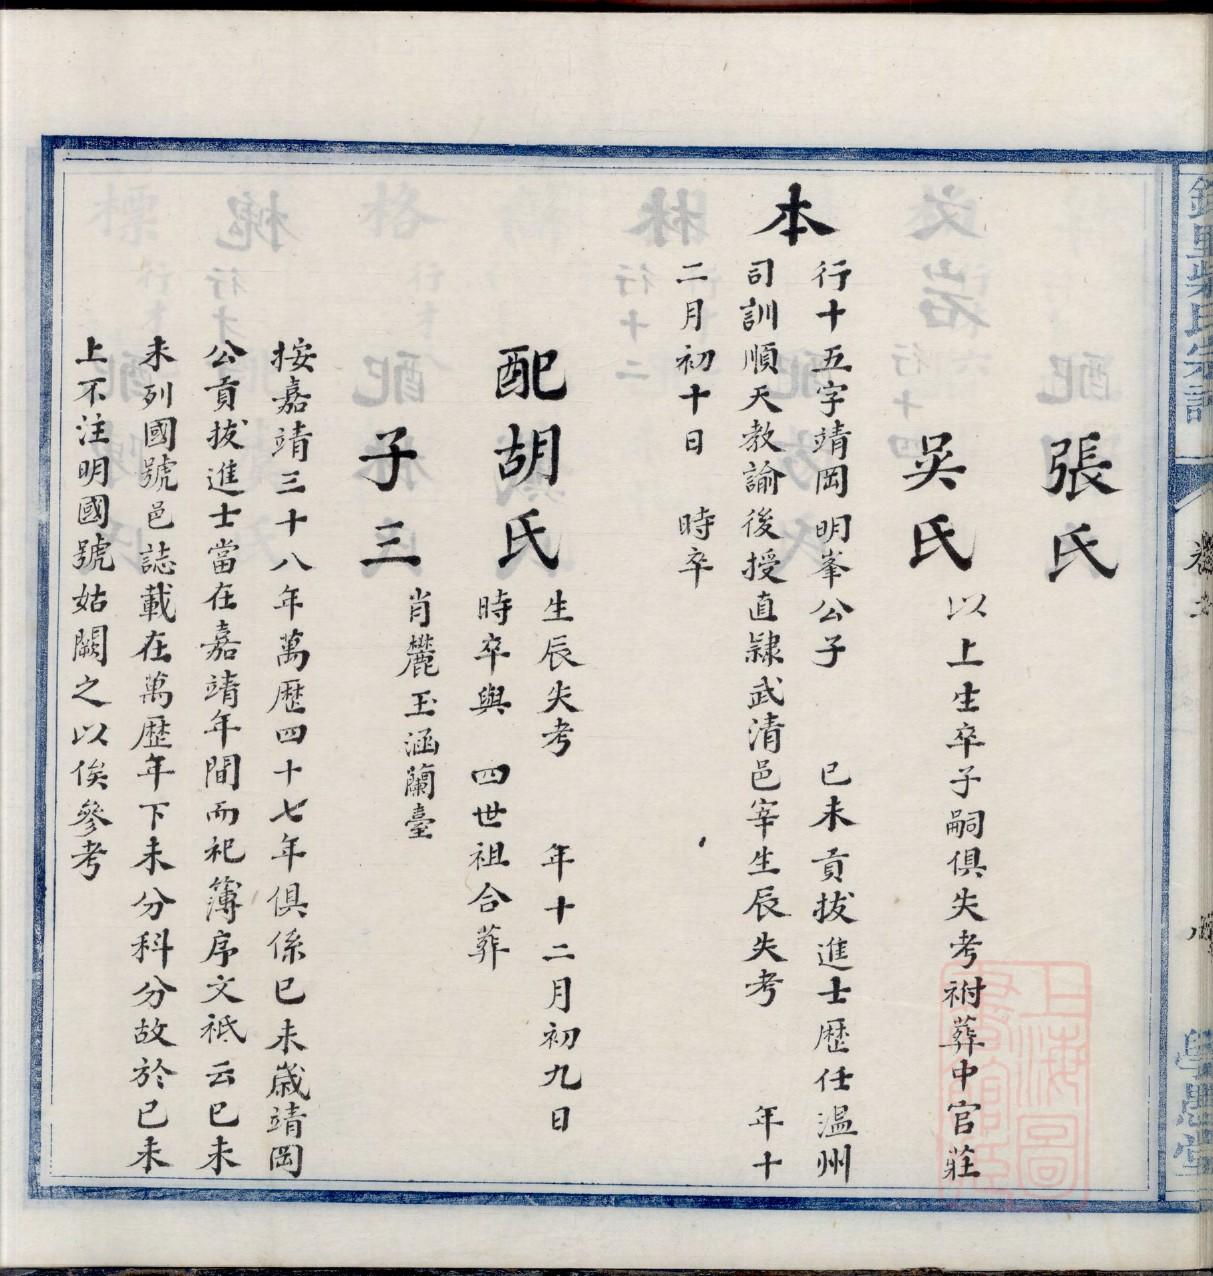 張氏
吳氏
以上生卒子嗣俱失考祔葬中官莊
本
行十五字靖岡明峯公子 已未貢拔進士歷任温州
司訓順天教諭後授直隸武清邑宰生辰失考 年十
二月初十日 時卒
配胡氏
生辰失考 年十二月初九日
時卒與 四世祖合葬
子三
肖麓玉涵蘭臺
按嘉靖三十八年萬歷四十七年俱係已未歲靖岡
公貢拔進士當在嘉靖年間而祀簿序文祗云已未
未列國號邑誌載在萬歷年下未分科分故於已未
上不注明國號姑闕之以俟參考
柴氏宗譜
卷
學思堂
上海圖書館藏